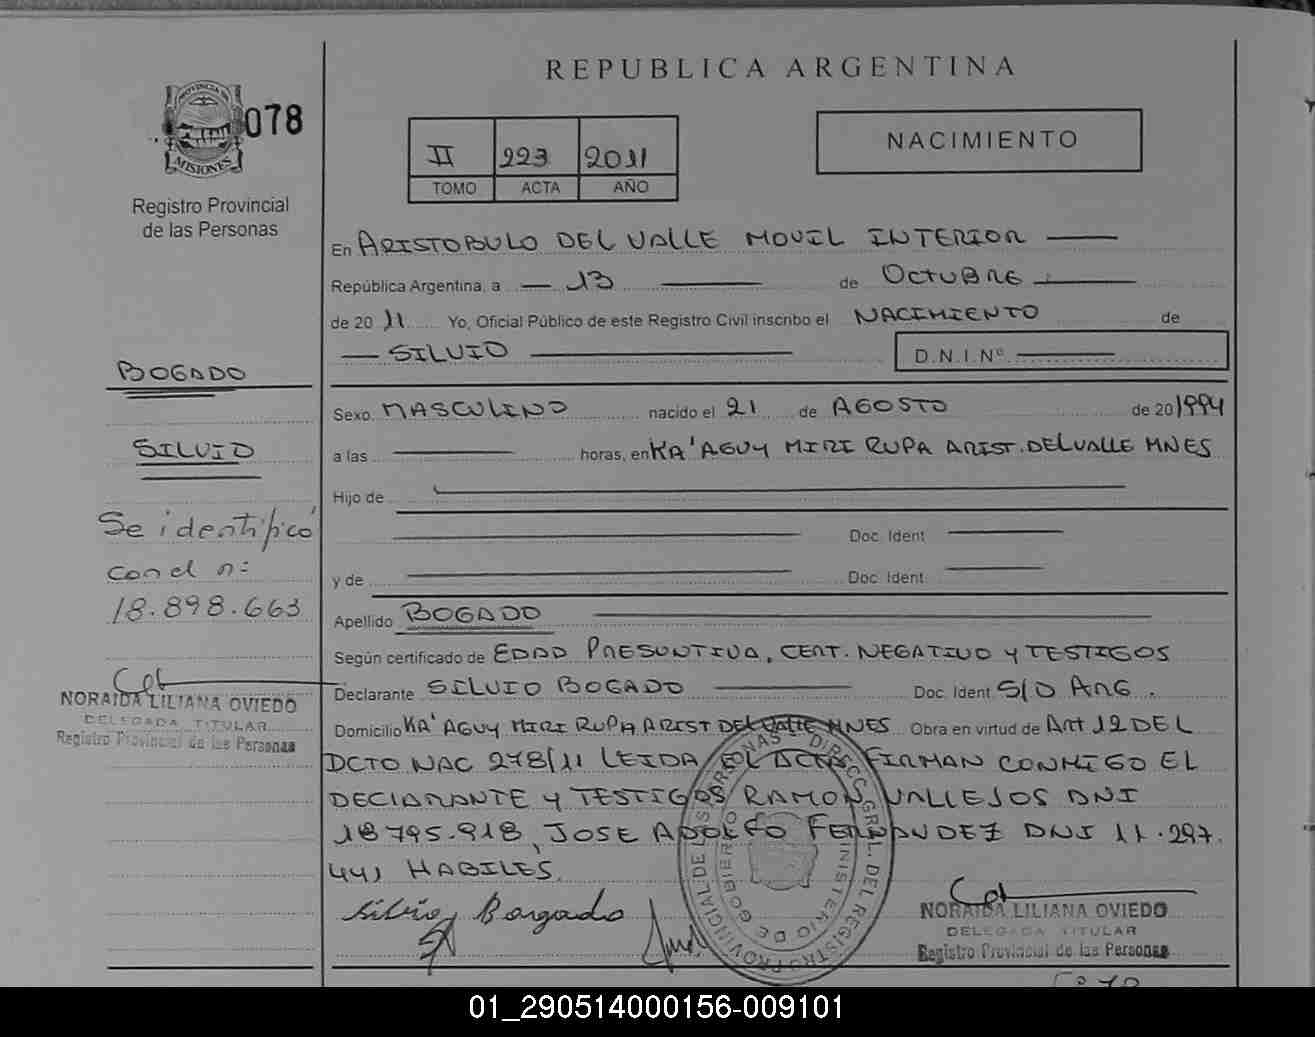 REPUBLICA ARGENTINA
PROVINCIA DE
MISIONES
078
Registro Provincial
de las Personas
II 223 2011
TOMO ACTA AÑO
NACIMIENTO
En ARISTOBULO DEL VALLE MOVIL INTERIOR
República Argentina, a 13 de OCTUBRE
de 20 11 Yo, Oficial Público de este Registro Civil inscribo el NACIMIENTO de
SILVIO D.N.I.Nº
BOGADO
SILVIO
Se identificó
con el n:
18.898.663
NORAIDA LILIANA OVIEDO
DELEGADA TITULAR
Registro Provincial de las Personas
Sexo MASCULINO nacido el 21 de AGOSTO de 20 1994
a las horas, en KA'AGUY MIRI RUPA ARIST. DEL VALLE MNES
Hijo de
Doc. Ident
y de Doc. Ident
Apellido BOGADO
Según certificado de EDAD PRESUNTIVA, CERT. NEGATIVO Y TESTIGOS
Declarante SILVIO BOGADO Doc. Ident S/D ARG.
Domicilio KA'AGUY MIRI RUPA ARIST DEL VALLE MNES Obra en virtud de ART 12 DEL
DCTO NAC 278/11 LEIDA EL ACTA FIRMAN CONMIGO EL
DECLARANTE Y TESTIGOS RAMON VALLEJOS DNI
18795.918, JOSE ADOLFO FERNANDEZ DNI 11.297.
441 HABILES.
Silvio Bogado
DIRECC. GRAL. DEL REGISTRO PROVINCIAL DE LAS PERSONAS
MINISTERIO DE GOBIERNO
NORAIDA LILIANA OVIEDO
DELEGADA TITULAR
Registro Provincial de las Personas
01_290514000156-009101